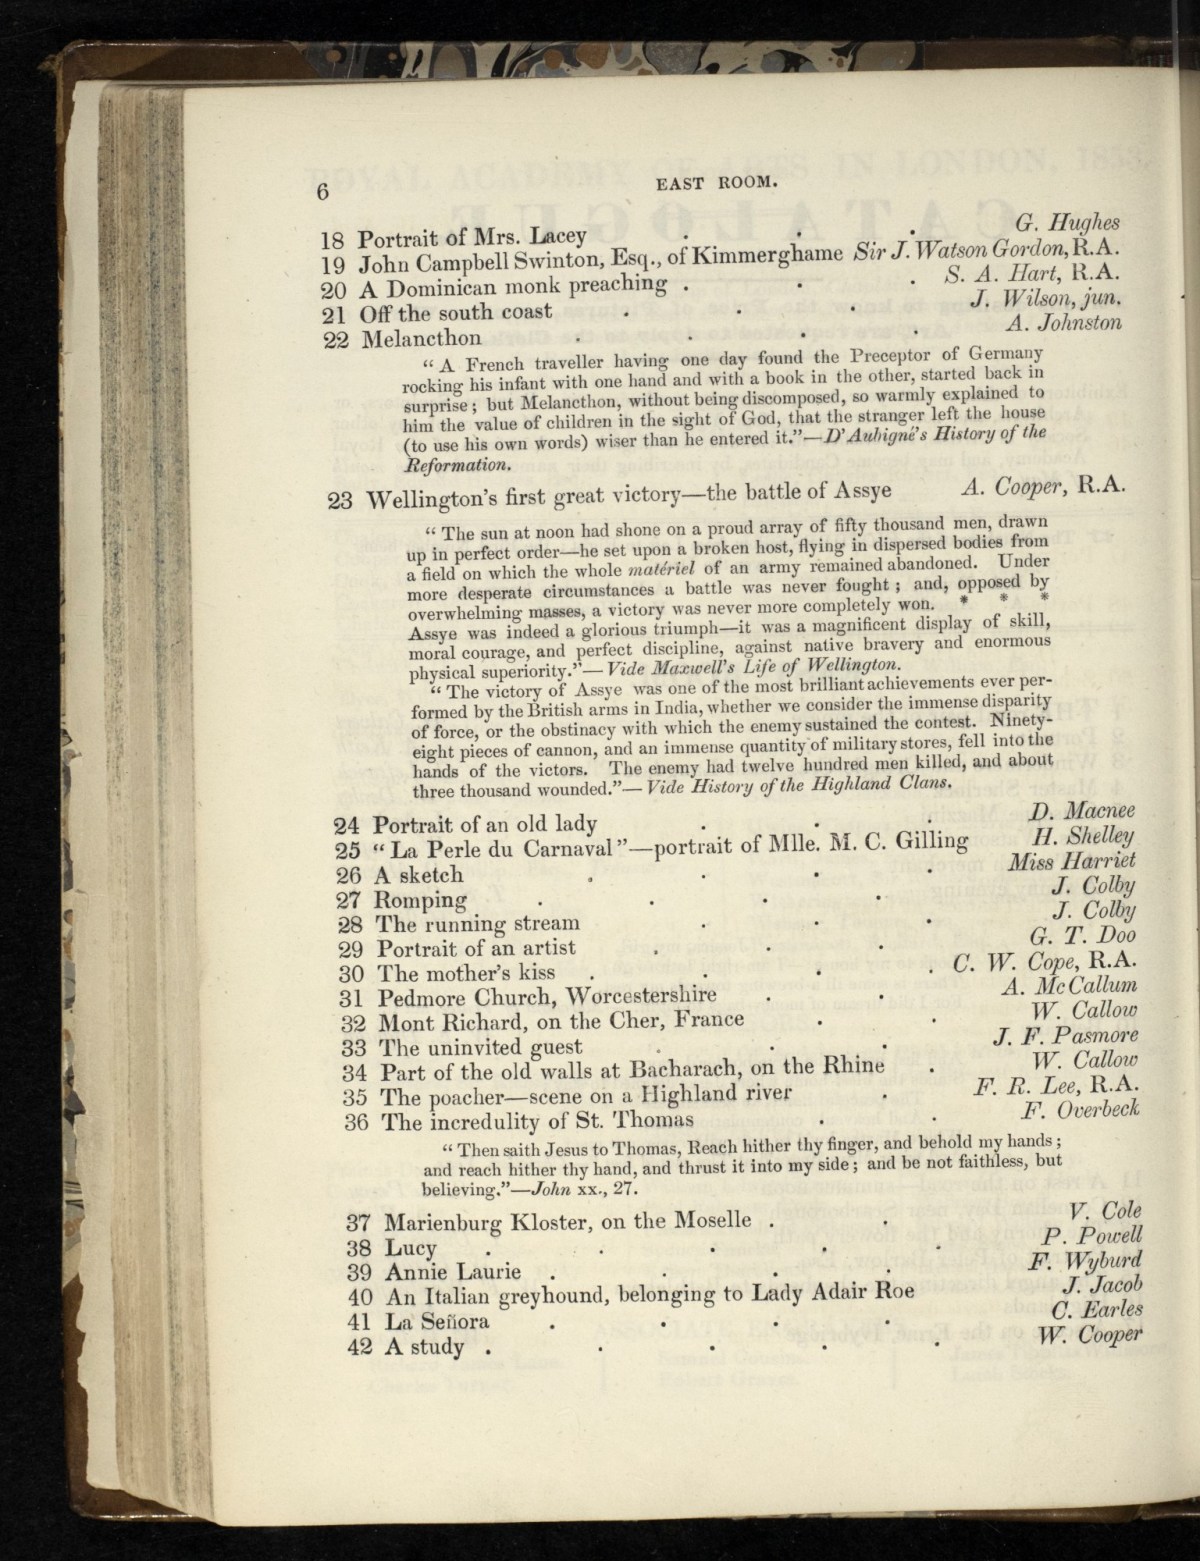 6 EAST ROOM.
18 Portrait of Mrs. Lacey . . . G. Hughes
19 John Campbell Swinton, Esq., of Kimmerghame Sir J. Watson Gordon, R.A.
20 A Dominican monk preaching . . . S. A. Hart, R.A.
21 Off the south coast . . . J. Wilson, jun.
22 Melancthon . . . . A. Johnston
“ A French traveller having one day found the Preceptor of Germany
rocking his infant with one hand and with a book in the other, started back in
surprise ; but Melancthon, without being discomposed, so warmly explained to
him the value of children in the sight of God, that the stranger left the house
(to use his own words) wiser than he entered it.”—D'Aubigné's History of the
Reformation.
23 Wellington's first great victory—the battle of Assye A. Cooper, R.A.
“ The sun at noon had shone on a proud array of fifty thousand men, drawn
up in perfect order—he set upon a broken host, flying in dispersed bodies from
a field on which the whole matériel of an army remained abandoned. Under
more desperate circumstances a battle was never fought ; and, opposed by
overwhelming masses, a victory was never more completely won. * * *
Assye was indeed a glorious triumph—it was a magnificent display of skill,
moral courage, and perfect discipline, against native bravery and enormous
physical superiority.”—Vide Maxwell's Life of Wellington.
“ The victory of Assye was one of the most brilliant achievements ever per-
formed by the British arms in India, whether we consider the immense disparity
of force, or the obstinacy with which the enemy sustained the contest. Ninety-
eight pieces of cannon, and an immense quantity of military stores, fell into the
hands of the victors. The enemy had twelve hundred men killed, and about
three thousand wounded.”—Vide History of the Highland Clans.
24 Portrait of an old lady . . . D. Macnee
25 “ La Perle du Carnaval ”—portrait of Mlle. M. C. Gilling H. Shelley
26 A sketch . . . . Miss Harriet
27 Romping . . . . J. Colby
28 The running stream . . . J. Colby
29 Portrait of an artist . . . G. T. Doo
30 The mother's kiss . . . . C. W. Cope, R.A.
31 Pedmore Church, Worcestershire . . A. McCallum
32 Mont Richard, on the Cher, France . . W. Callow
33 The uninvited guest . . . J. F. Pasmore
34 Part of the old walls at Bacharach, on the Rhine . W. Callow
35 The poacher—scene on a Highland river . F. R. Lee, R.A.
36 The incredulity of St. Thomas . . F. Overbeck
“ Then saith Jesus to Thomas, Reach hither thy finger, and behold my hands ;
and reach hither thy hand, and thrust it into my side ; and be not faithless, but
believing.”—John xx., 27.
37 Marienburg Kloster, on the Moselle . . V. Cole
38 Lucy . . . . . P. Powell
39 Annie Laurie . . . . F. Wyburd
40 An Italian greyhound, belonging to Lady Adair Roe J. Jacob
41 La Señora . . . . C. Earles
42 A study . . . . . W. Cooper